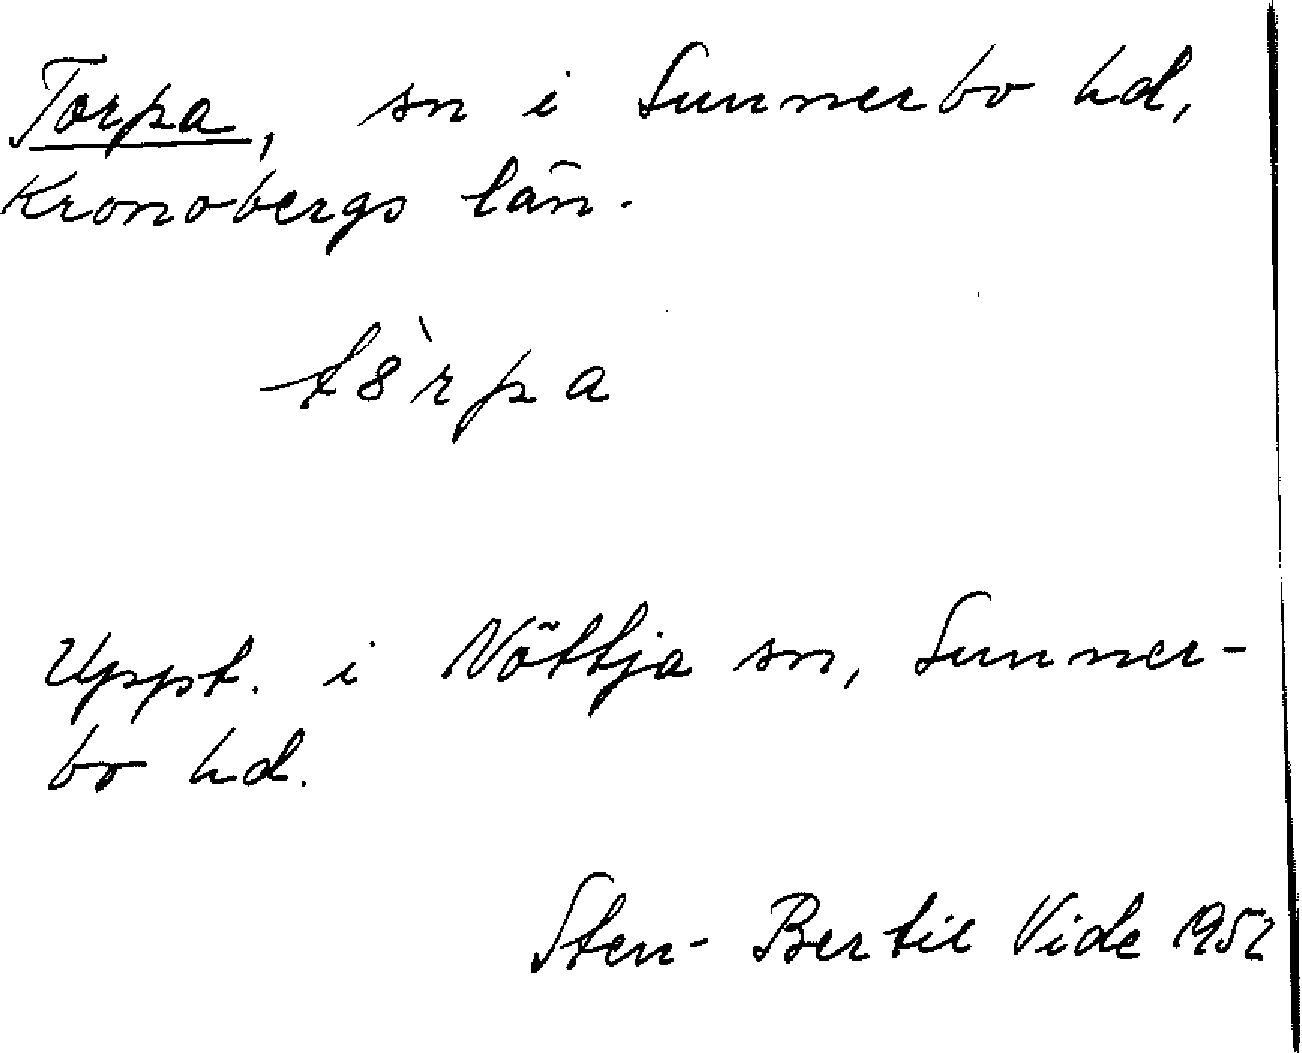 Torpa, sn i Sunnerbo hd,
Kronobergs län.
t8̀rpa
Uppt. i Nöttja sn, Sunner-
bo hd.
Sten-Bertil Vide 1952